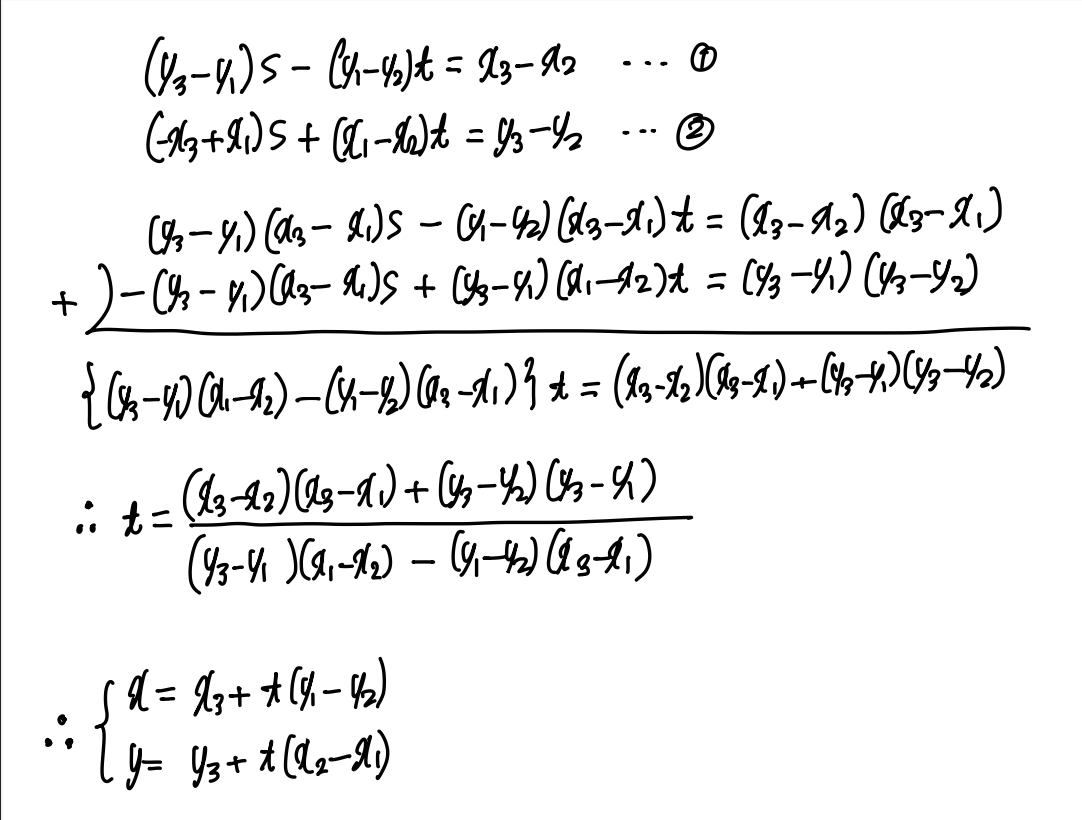 (y₃-y₁)s - (y₁-y₂)t = x₃-x₂ ... ①
(-x₃+x₁)s + (x₁-x₂)t = y₃-y₂ ... ②
(y₃-y₁)(x₃-x₁)s - (y₁-y₂)(x₃-x₁)t = (x₃-x₂)(x₃-x₁)
+ ) -(y₃-y₁)(x₃-x₁)s + (y₃-y₁)(x₁-x₂)t = (y₃-y₁)(y₃-y₂)
{(y₃-y₁)(x₁-x₂) - (y₁-y₂)(x₃-x₁)} t = (x₃-x₂)(x₃-x₁) + (y₃-y₁)(y₃-y₂)
(x₃-x₂)(x₃-x₁) + (y₃-y₂)(y₃-y₁)
∴ t =
(y₃-y₁)(x₁-x₂) - (y₁-y₂)(x₃-x₁)
∴ { x = x₃ + t(y₁-y₂)
y = y₃ + t(x₂-x₁)